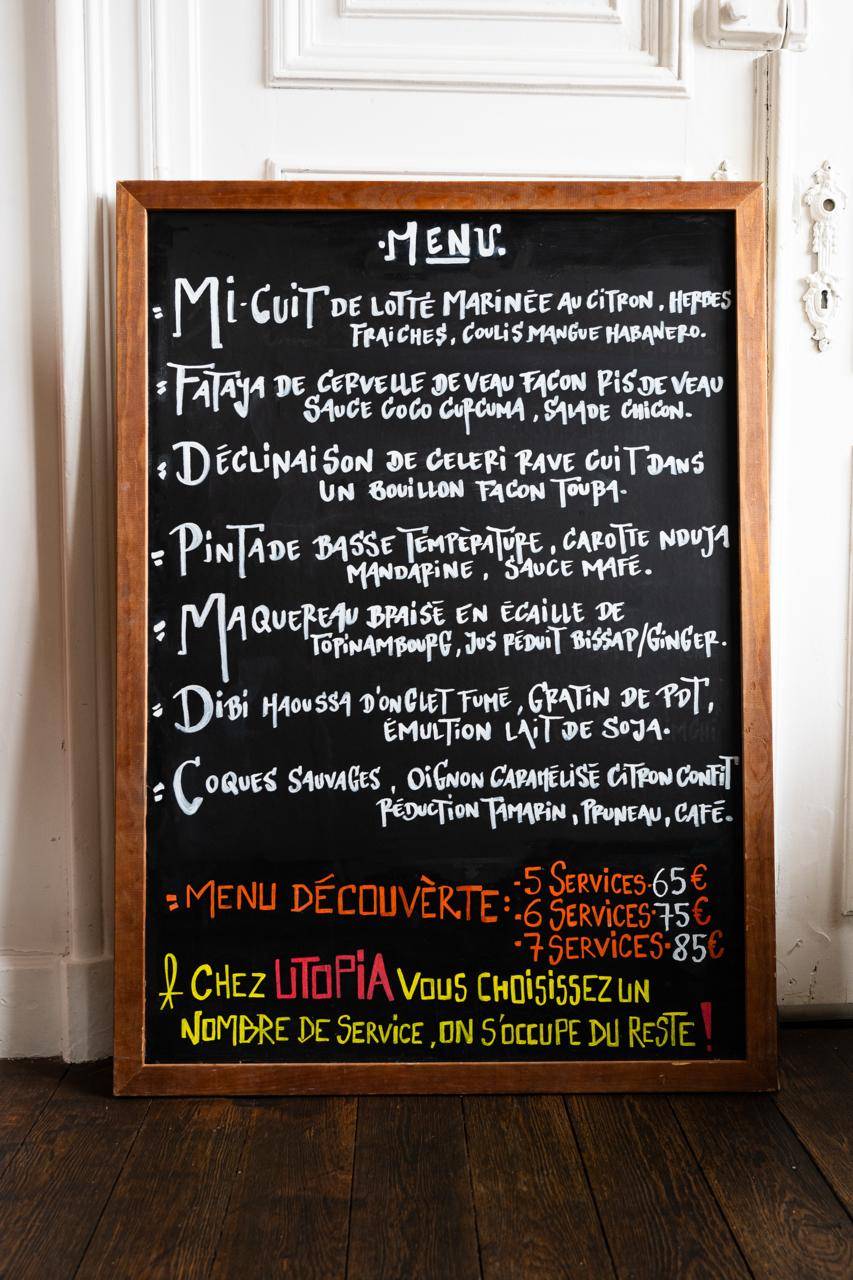 ·MENU.
= MI-CUIT DE LOTTE MARINÉE AU CITRON, HERBES
FRAICHES, COULIS MANGUE HABANERO.
= FATAYA DE CERVELLE DE VEAU FAÇON RIS DE VEAU
SAUCE COCO CURCUMA, SALADE CHICON.
= DÉCLINAISON DE CELERI RAVE CUIT DANS
UN BOUILLON FAÇON TOUBA.
= PINTADE BASSE TEMPÈRATURE, CAROTTE NDUJA
MANDARINE, SAUCE MAFÉ.
= MAQUEREAU BRAISÉ EN ÉCAILLE DE
TOPINAMBOURG, JUS RÉDUIT BISSAP/GINGER.
= DIBI HAOUSSA D'ONGLET FUMÉ, GRATIN DE PDT,
ÉMULTION LAIT DE SOJA.
= COQUES SAUVAGES, OIGNON CARAMÉLISÉ CITRON CONFIT
RÉDUCTION TAMARIN, PRUNEAU, CAFÉ.
= MENU DÉCOUVÈRTE: ·5 SERVICES·65€
·6 SERVICES·75€
·7 SERVICES·85€
CHEZ UTOPIA VOUS CHOISISSEZ UN
NOMBRE DE SERVICE, ON S'OCCUPE DU RESTE!